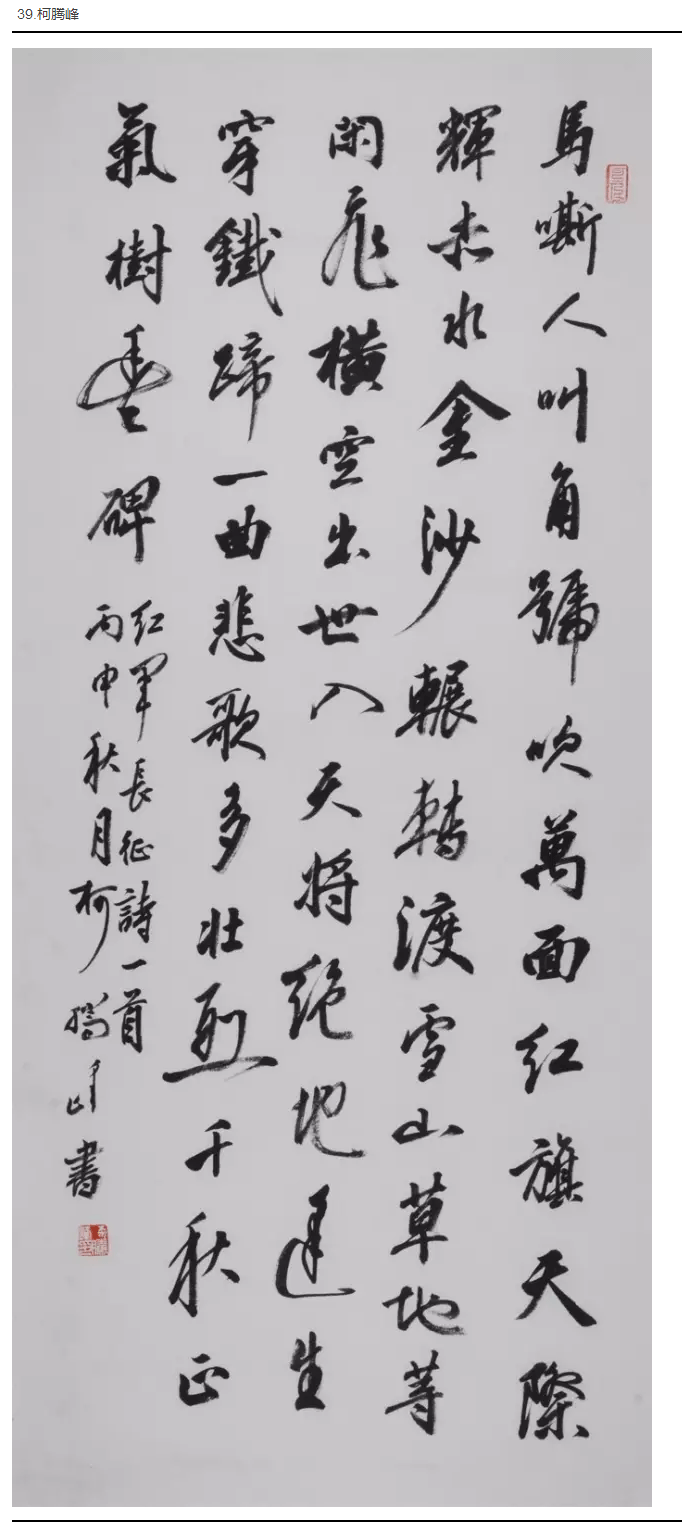 39.柯腾峰
馬嘶人叫角號吹萬面紅旗天際
輝赤水金沙輾轉渡雪山草地等
閑飛橫空出世入天將絕地逢生
穿鐵蹄一曲悲歌多壯烈千秋正
氣樹豐碑
紅軍長征詩一首
丙申秋月柯騰峰書